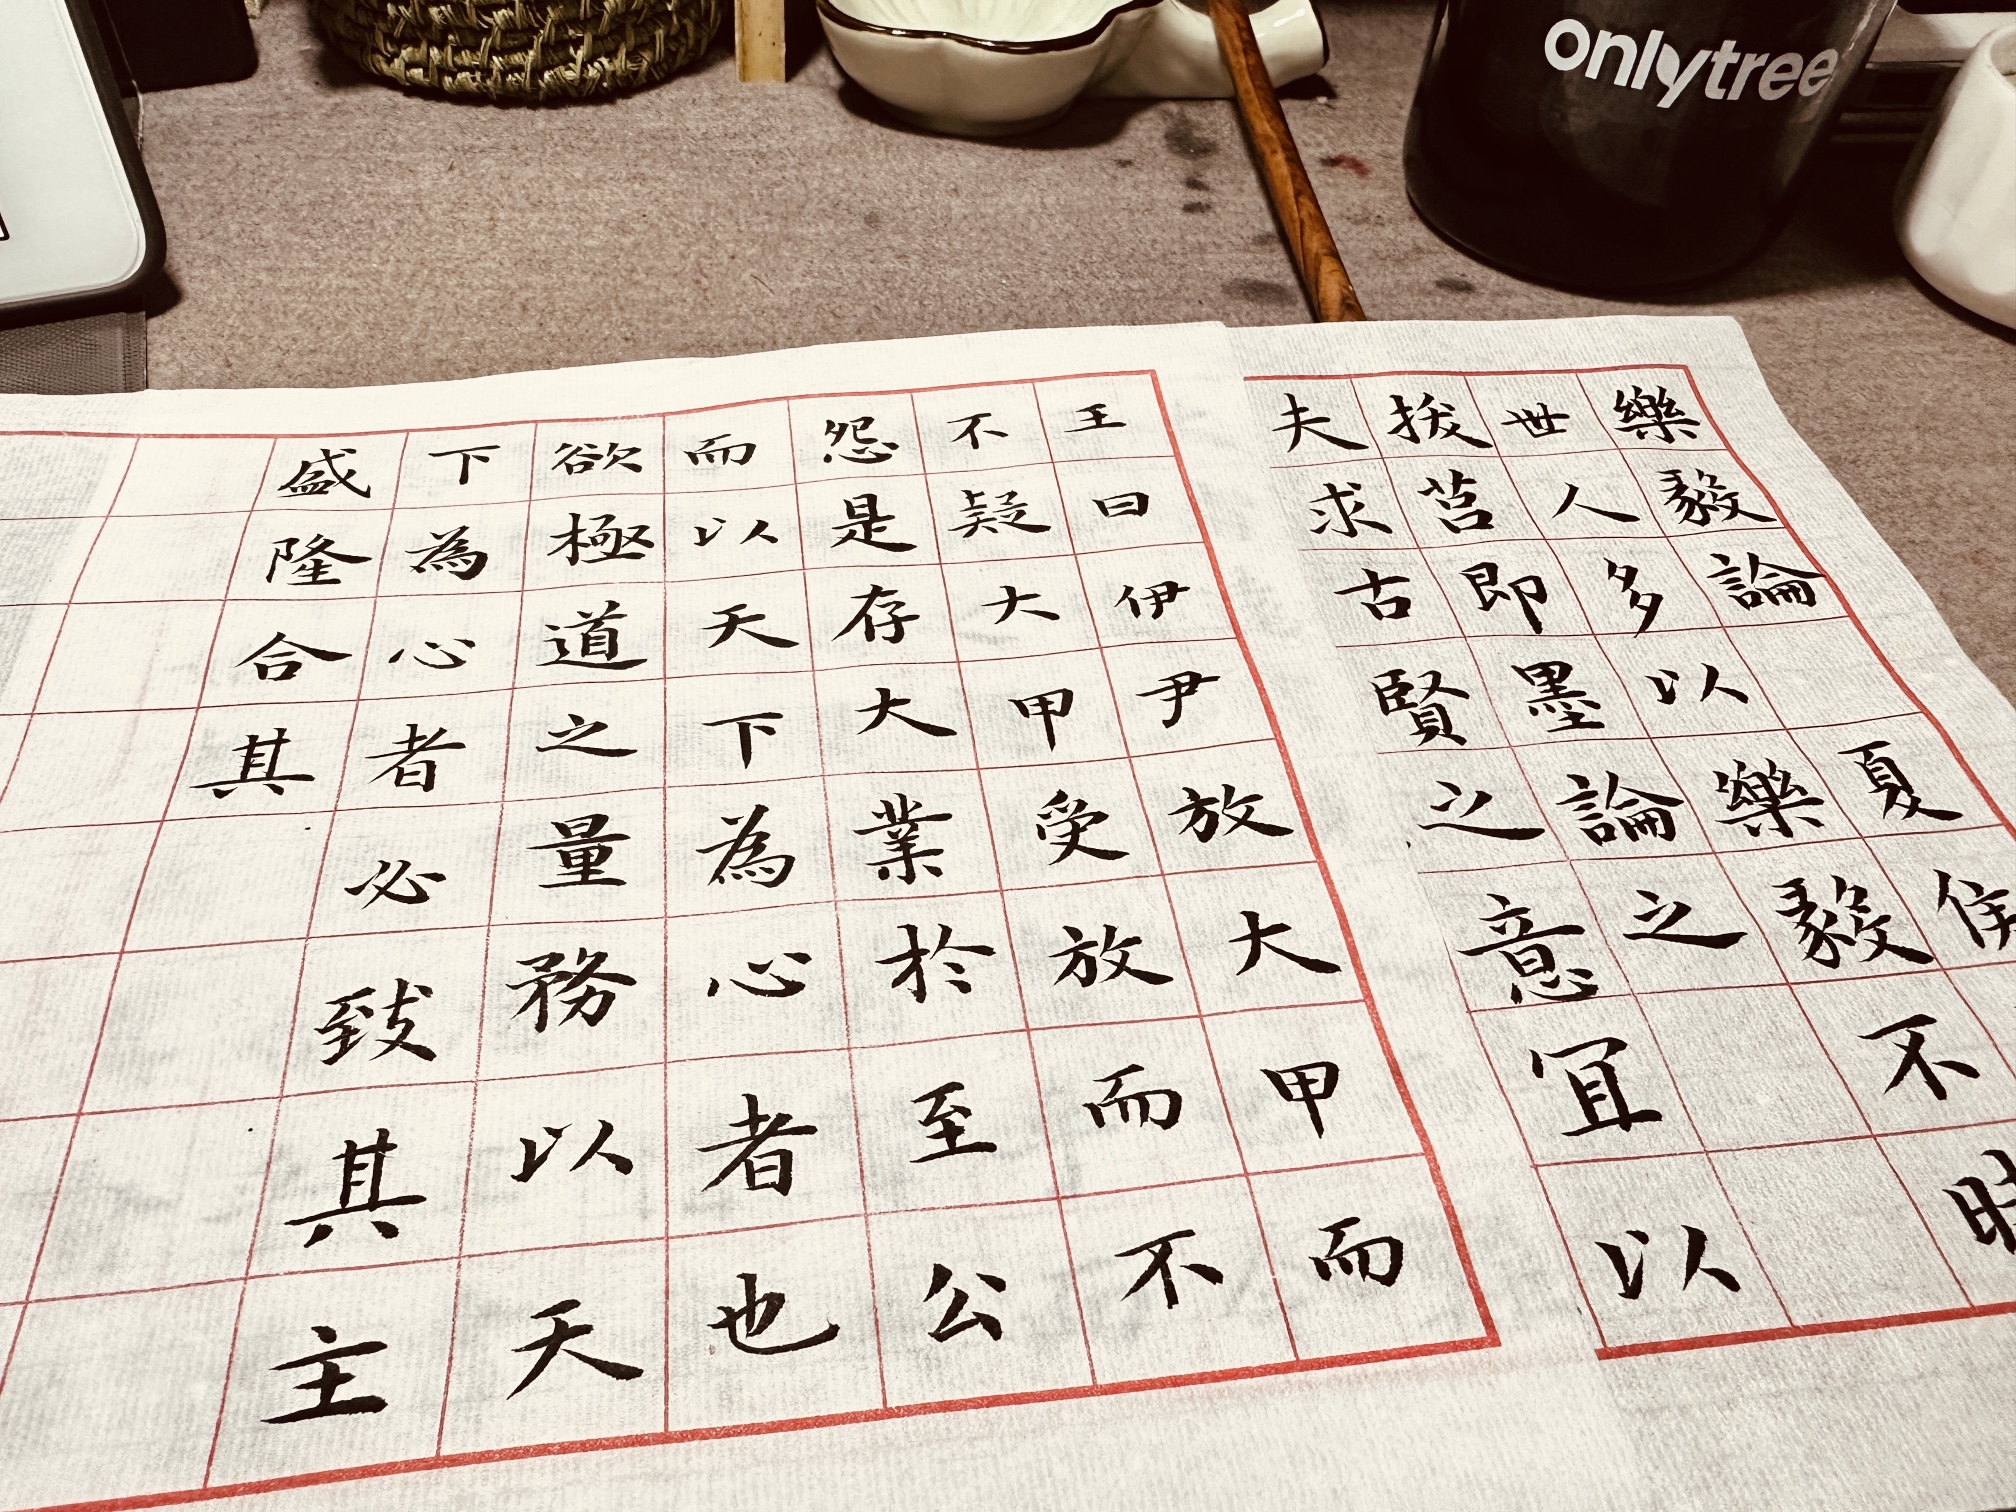 樂毅論 夏侯
世人多以樂毅不時
拔莒即墨論之
夫求古賢之意宜以
王曰伊尹放大甲而
不疑大甲受放而不
怨是存大業於至公
而以天下為心者也
欲極道之量務以天
下為心者必致其主
盛隆合其
onlytree